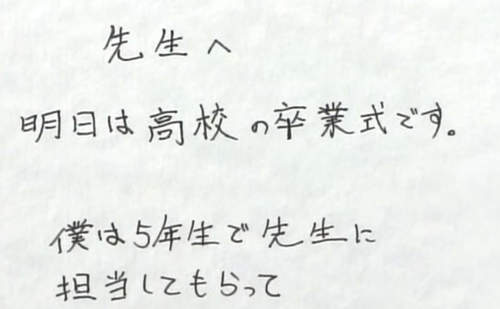 先生へ
明日は高校の卒業式です。
僕は5年生で先生に
担当してもらって